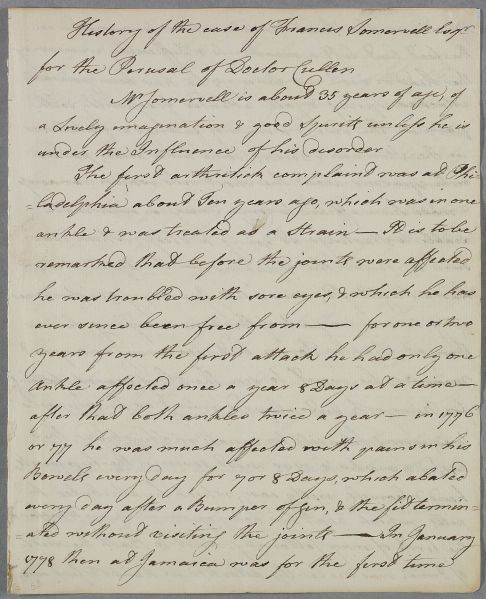 History of the case of Francis Somervell Esqr
for the Perusal of Doctor Cullen
Mr Somervell is about 35 years of age, of
a Lively imagination & good Spirits unless he is
under the Influence of his disorder
The first arthritick complaint was at Phi
=ladelphia about Ten years ago, which was in one
ankle & was treated as a Strain — It is to be
remarked that before the joints were affected
he was troubled with sore eyes, & which he has
ever since been free from — for one or two
years from the first attack he had only one
Ankle affected once a year 8 Days at a time —
after that both ankles twice a year — in 1776
or 77 he was much affected with pains in his
Bowels every day for 7 or 8 Days, which abated
every day after a Bumper of Gin, & the fit termin=
=ated without visiting the joints — In January
1778 then at Jamaica was for the first time